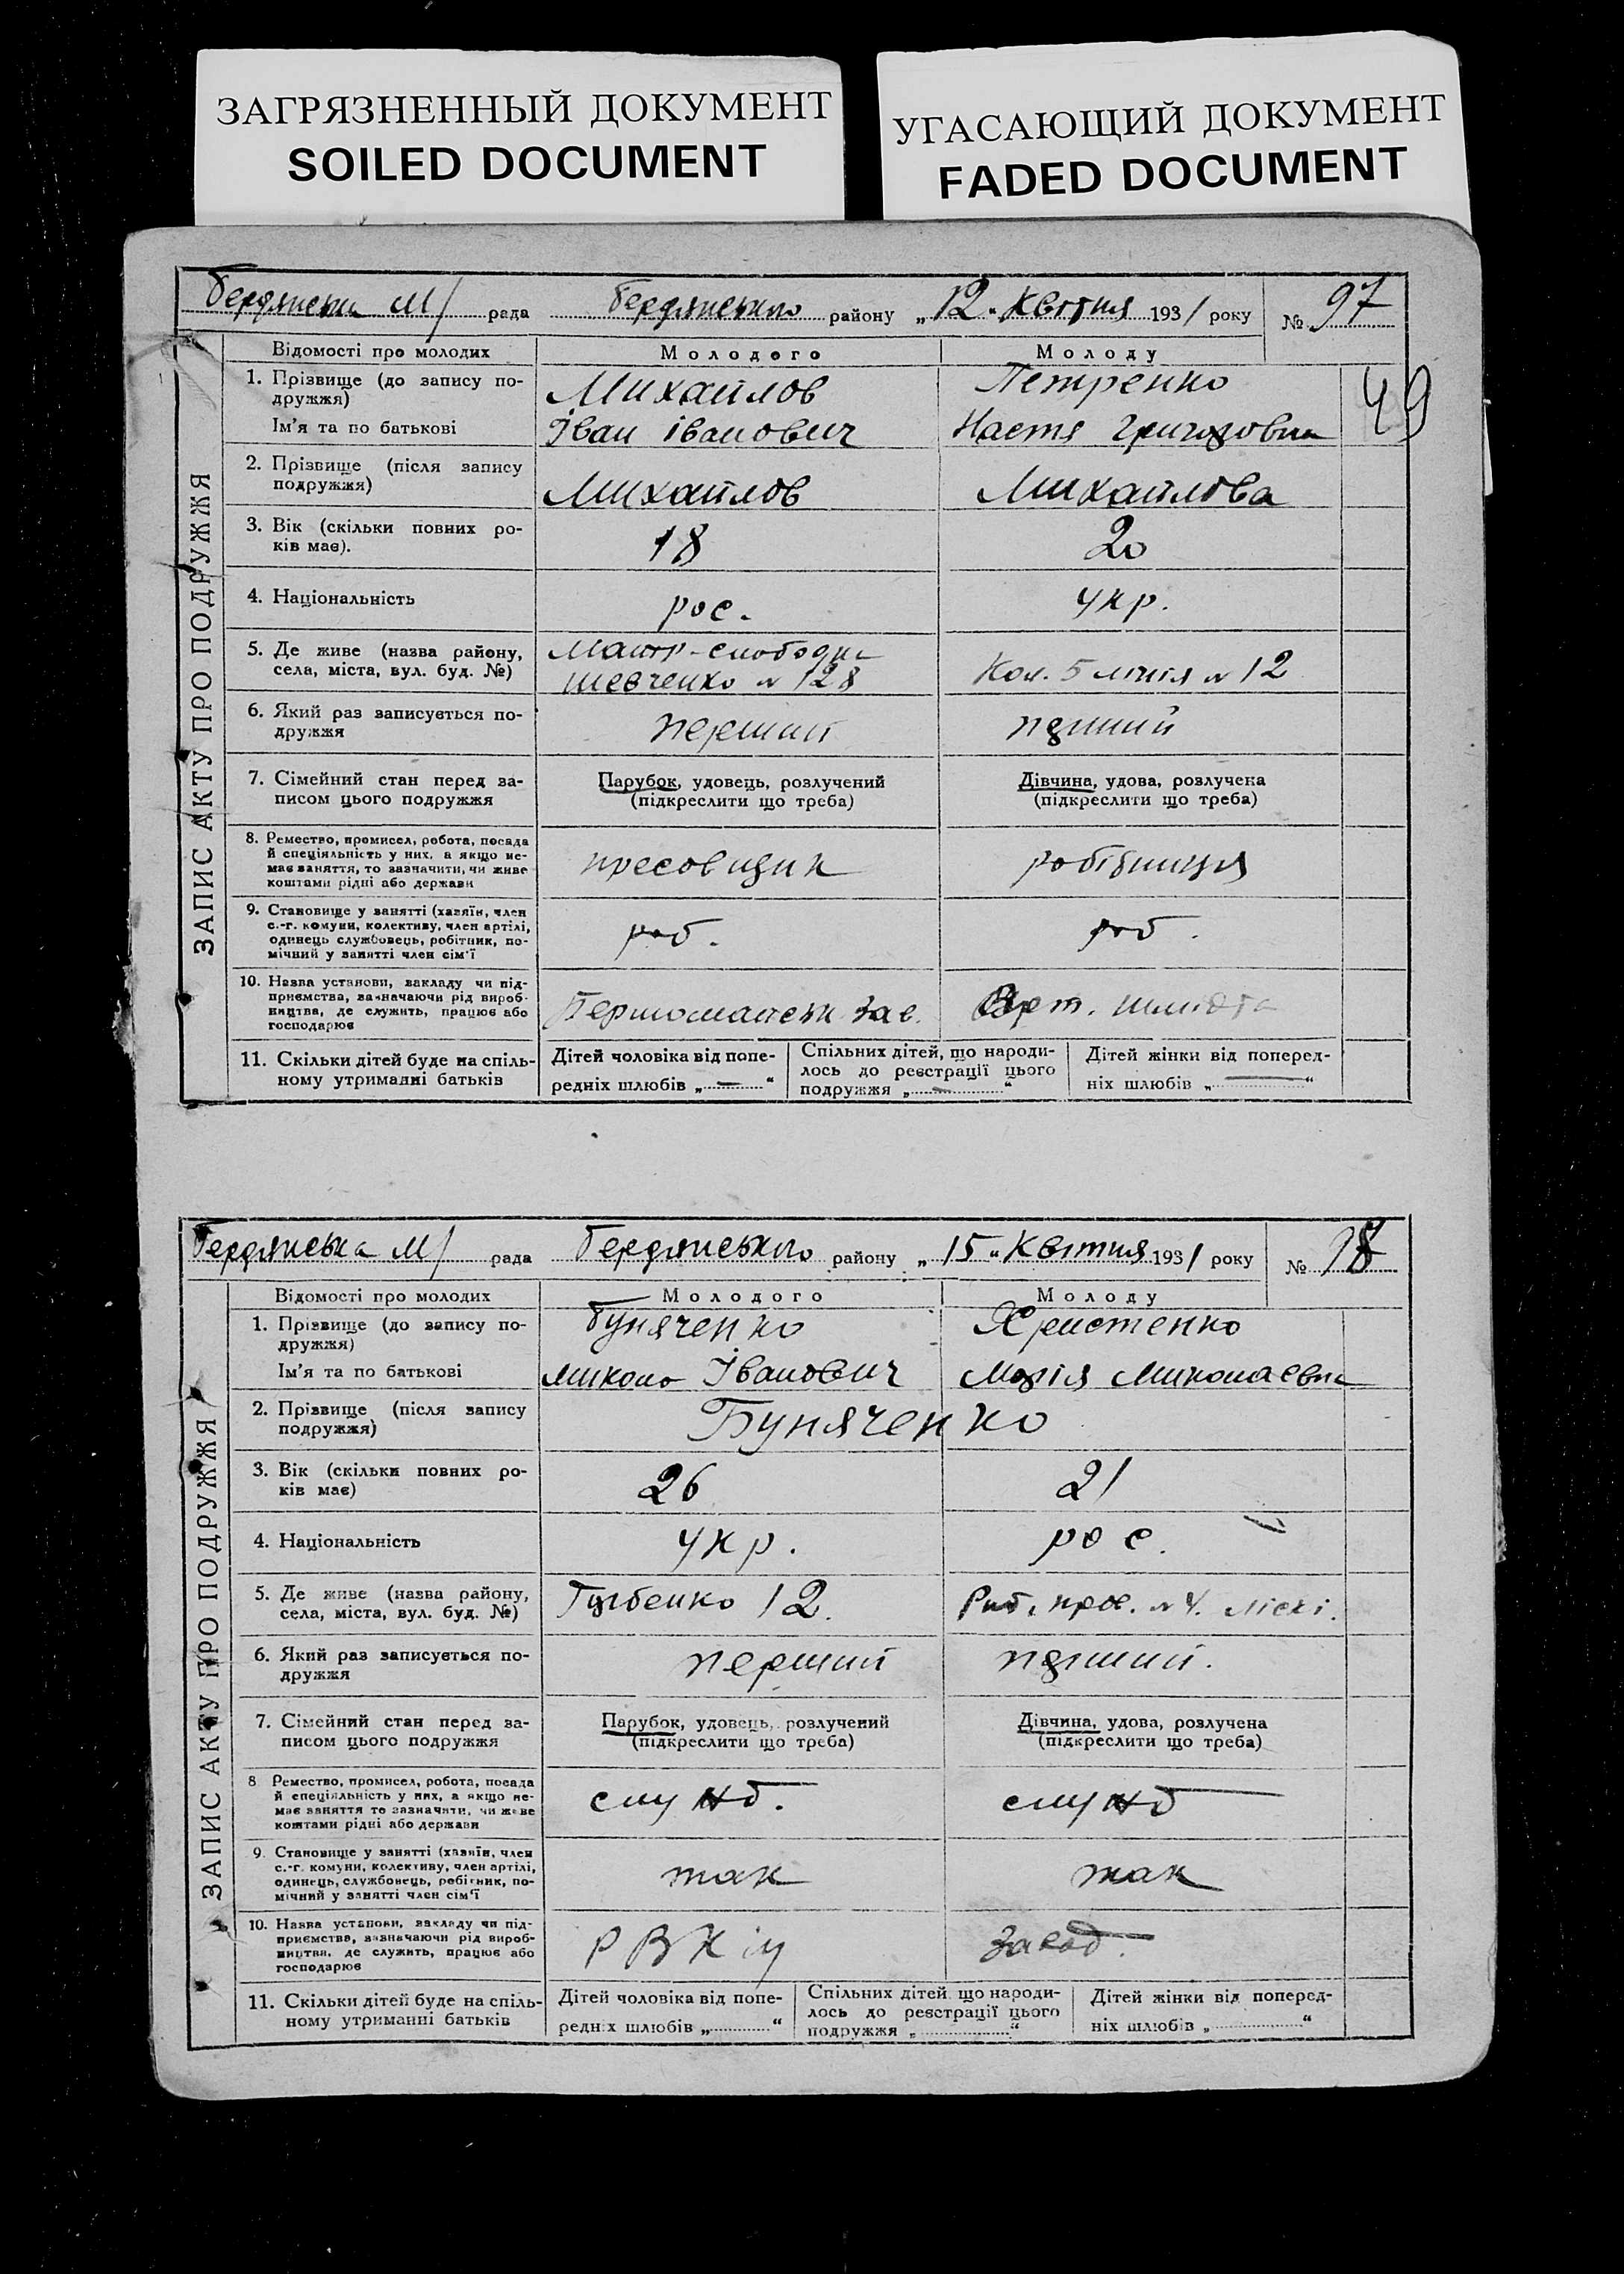 ЗАГРЯЗНЕННЫЙ ДОКУМЕНТ
SOILED DOCUMENT
УГАСАЮЩИЙ ДОКУМЕНТ
FADED DOCUMENT
Бердянська М/ рада Бердянського району „12“ Квітня 1931 року № 97
ЗАПИС АКТУ ПРО ПОДРУЖЖЯ
Відомості про молодих Молодого Молоду
49
1. Прізвище (до запису по-
дружжя)
Михайлов Петренко
Ім'я та по батькові Іван Іванович Настя Григоровна
2. Прізвище (після запису
подружжя)
Михайлов Михайлова
3. Вік (скільки повних ро-
ків має).
18 20
4. Національність рос. укр.
5. Де живе (назва району,
села, міста, вул. буд. №)
слободка
Шевченко № 128 Кол. 5 лінія № 12
6. Який раз записується по-
дружжя
перший перший
7. Сімейний стан перед за-
писом цього подружжя
Парубок, удовець, розлучений
(підкреслити що треба)
Дівчина, удова, розлучена
(підкреслити що треба)
8. Ремество, промисел, робота, посада
й спеціяльність у них, а якщо не-
має заняття, то зазначити, чи живе
коштами рідні або держави
пресовщик робітниця
9. Становище у занятті (хазяїн, член
с.-г. комуни, колективу, член артілі,
одинець службовець, робітник, по-
мічний у занятті член сім'ї
роб. роб.
10. Назва установи, закладу чи під-
приємства, зазначаючи рід вироб-
ництва, де служить, працює або
господарює
Першомайськ зав.
11. Скільки дітей буде на спіль-
ному утриманні батьків
Дітей чоловіка від попе-
редніх шлюбів „—“
Спільних дітей, що народи-
лось до реєстрації цього
подружжя „—“
Дітей жінки від поперед-
ніх шлюбів „—“
Бердянська М/ рада Бердянського району „15“ Квітня 1931 року № 98
ЗАПИС АКТУ ПРО ПОДРУЖЖЯ
Відомості про молодих Молодого Молоду
1. Прізвище (до запису по-
дружжя)
Буняченко Христенко
Ім'я та по батькові Микола Іванович Марія Миколаевна
2. Прізвище (після запису
подружжя)
Буняченко
3. Вік (скільки повних ро-
ків має)
26 21
4. Національність укр. рос.
5. Де живе (назва району,
села, міста, вул. буд. №)
12. № 4. Ліскі.
6. Який раз записується по-
дружжя
перший перший.
7. Сімейний стан перед за-
писом цього подружжя
Парубок, удовець, розлучений
(підкреслити що треба)
Дівчина, удова, розлучена
(підкреслити що треба)
8 Ремество, промисел, робота, посада
й спеціяльність у них, а якщо не-
має заняття то зазначити, чи живе
коштами рідні або держави
служб. служб
9. Становище у занятті (хазяїн, член
с.-г. комуни, колективу, член артілі,
одинець, службовець, робітник, по-
мічний у занятті член сім'ї
так так
10. Назва установи, закладу чи під-
приємства, зазначаючи рід вироб-
ництва, де служить, працює або
господарює
РВК
11. Скільки дітей буде на спіль-
ному утриманні батьків
Дітей чоловіка від попе-
редніх шлюбів „ “
Спільних дітей, що народи-
лось до реєстрації цього
подружжя „ “
Дітей жінки від поперед-
ніх шлюбів „ “